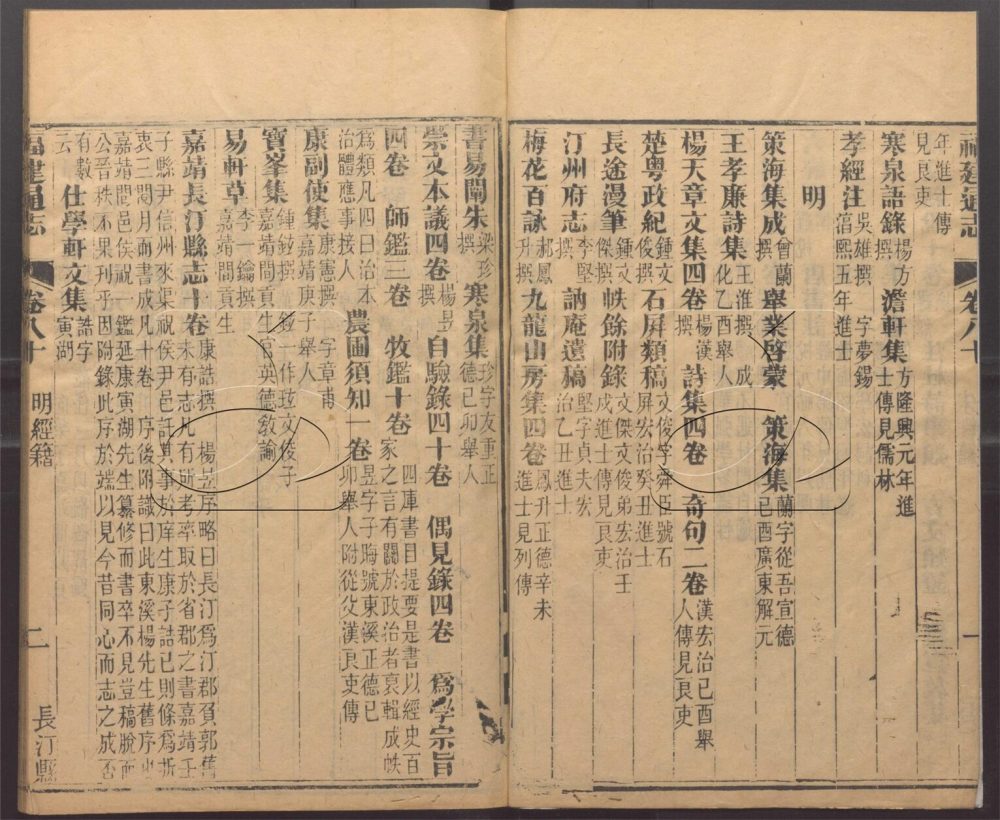 福建通志 卷八十 一
年進士傳
見良吏
寒泉語錄 楊方撰 澹軒集 方隆興元年進士傳見儒林
孝經注 吳雄撰 字夢錫 淳熙五年進士
明
策海集成 曾蘭撰 舉業啓蒙 策海集 蘭字從吾宣德己酉廣東解元
王孝廉詩集 王淮撰 成化乙酉舉人
楊天章文集四卷 楊漢撰 詩集四卷 奇句二卷 漢宏治己酉舉人傳見良吏
楚粵政紀 鍾文俊撰 石屏類稿 文俊字舜臣號石屏宏治癸丑進士
長途漫筆 鍾文傑撰 帙餘附錄 文傑文俊弟宏治壬戌進士傳見良吏
汀州府志 李堅撰 訥庵遺稿 堅字貞夫宏治乙丑進士
梅花百詠 郝鳳升撰 九龍山房集四卷 鳳升正德辛未進士見列傳
書易闡朱 梁珍撰 寒泉集 珍字友重正德己卯舉人
崇文本議四卷 楊昱撰 自驗錄四十卷 偶見錄四卷 爲學宗旨
四卷 師鑑三卷 牧鑑十卷 四庫書目提要是書以經史百家之言有關於政治者裒輯成帙
爲類凡四曰治本治體應事接人 農圃須知一卷 昱字子晦號東溪正德己卯舉人附從父漢良吏傳
康副使集 康憲撰 字章甫 嘉靖庚子舉人
寶峯集 鍾鉉撰 鉉一作玹文俊子 嘉靖間貢生官英德敎諭
易軒草 李一鑰撰 嘉靖間貢生
嘉靖長汀縣志十卷 康誥撰 楊昱序略曰長汀爲汀郡負郭舊未有志凡有所考率取於省郡之書嘉靖壬
子縣尹信州來渠祝侯尹邑託其事於庠生康子誥已則條爲折
衷三閱月而書成凡十卷 序後附識曰此東溪楊先生舊序也
嘉靖間邑侯祝一鑑延康寅湖先生纂修而書卒不見豈稿脫而
公晉秩不果刊乎因附錄此序於端以見今昔同心而志之成否
有數云 仕學軒文集 誥字寅湖
福建通志 卷八十 明經籍 二 長汀縣